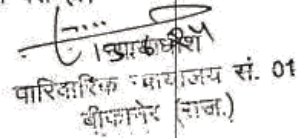 न्यायाधीश
पारिवारिक न्यायालय सं. 01
बीकानेर (राज.)